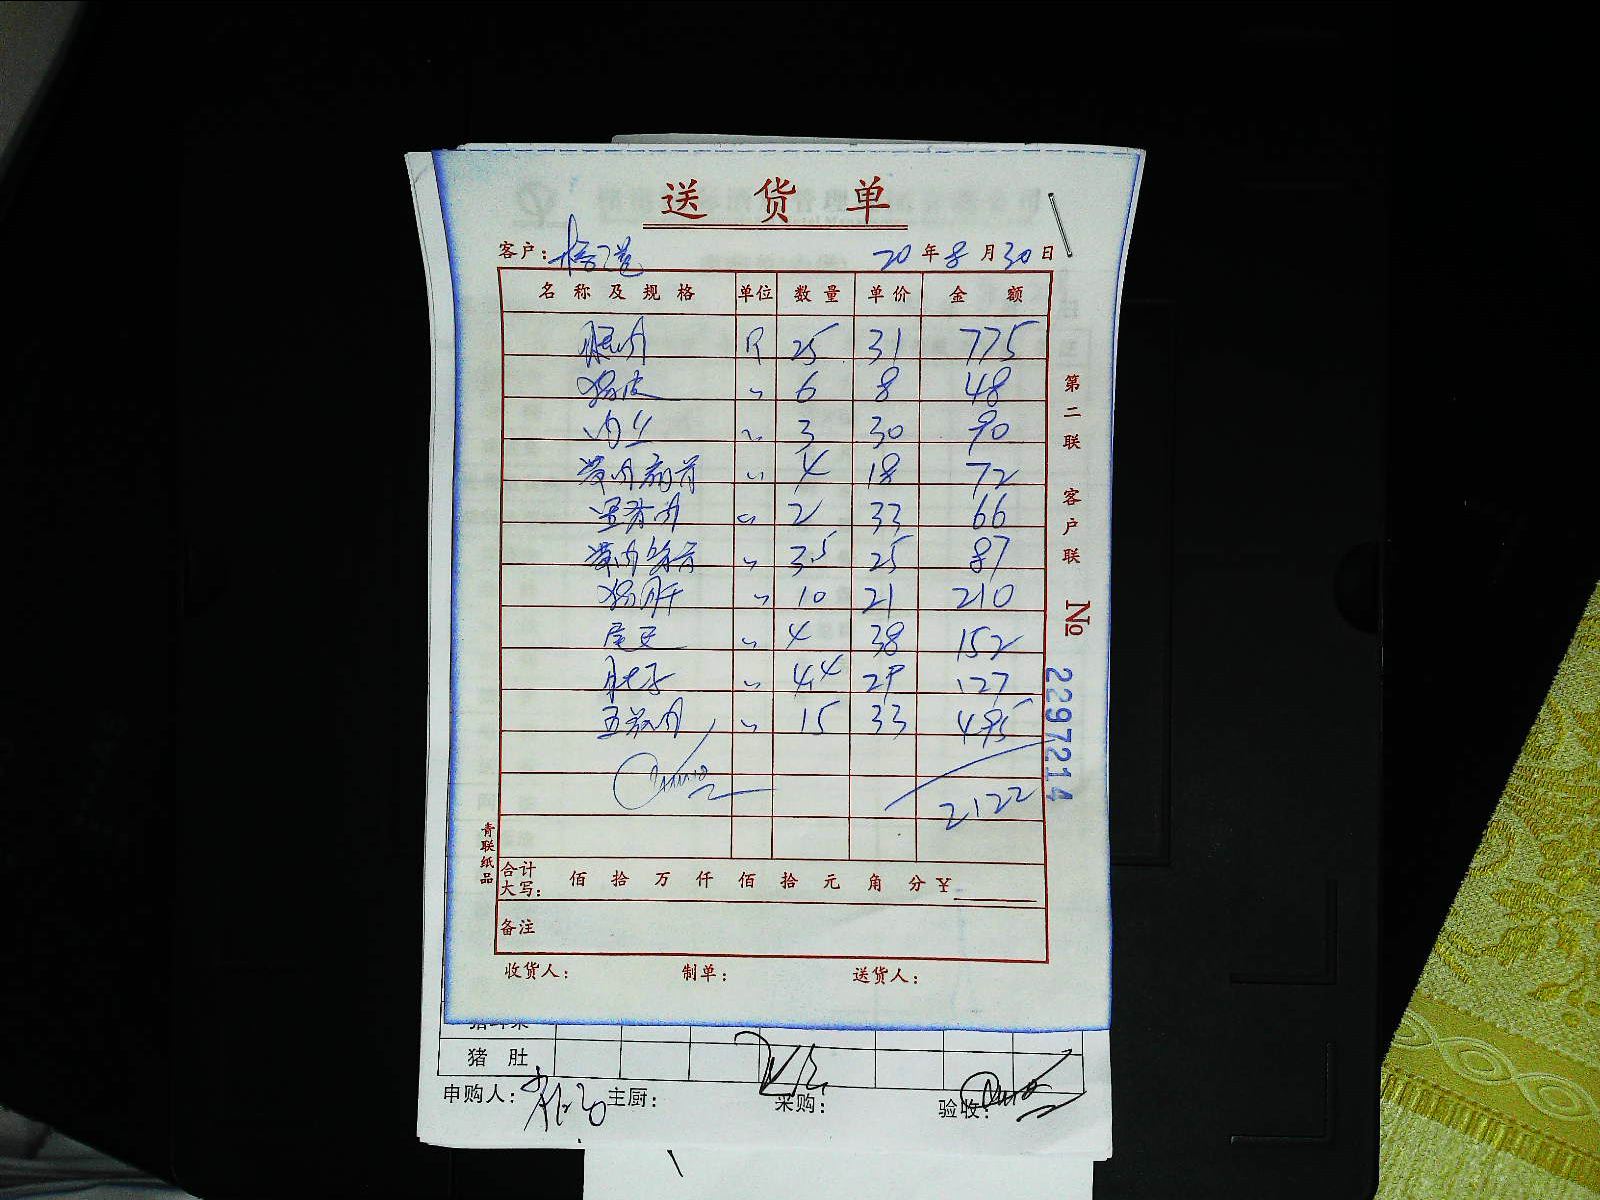 送货单
客户： 20年8月30日
名称及规格 单位 数量 单价 金额
腿肉 斤 25 31 775
猪皮 〃 6 8 48
肉丝 〃 3 30 90
带肉扇骨 〃 4 18 72
里脊肉 〃 2 33 66
带肉 〃 3.5 25 87
猪肝 〃 10 21 210
尾 〃 4 38 152
肚子 〃 4.4 29 127
五花肉 〃 15 33 495
2122
合计大写： 佰 拾 万 仟 佰 拾 元 角 分 ¥
备注
收货人： 制单： 送货人：
第二联 客户联 No 2297214
青联纸品
猪肚
申购人： 主厨： 采购： 验收：